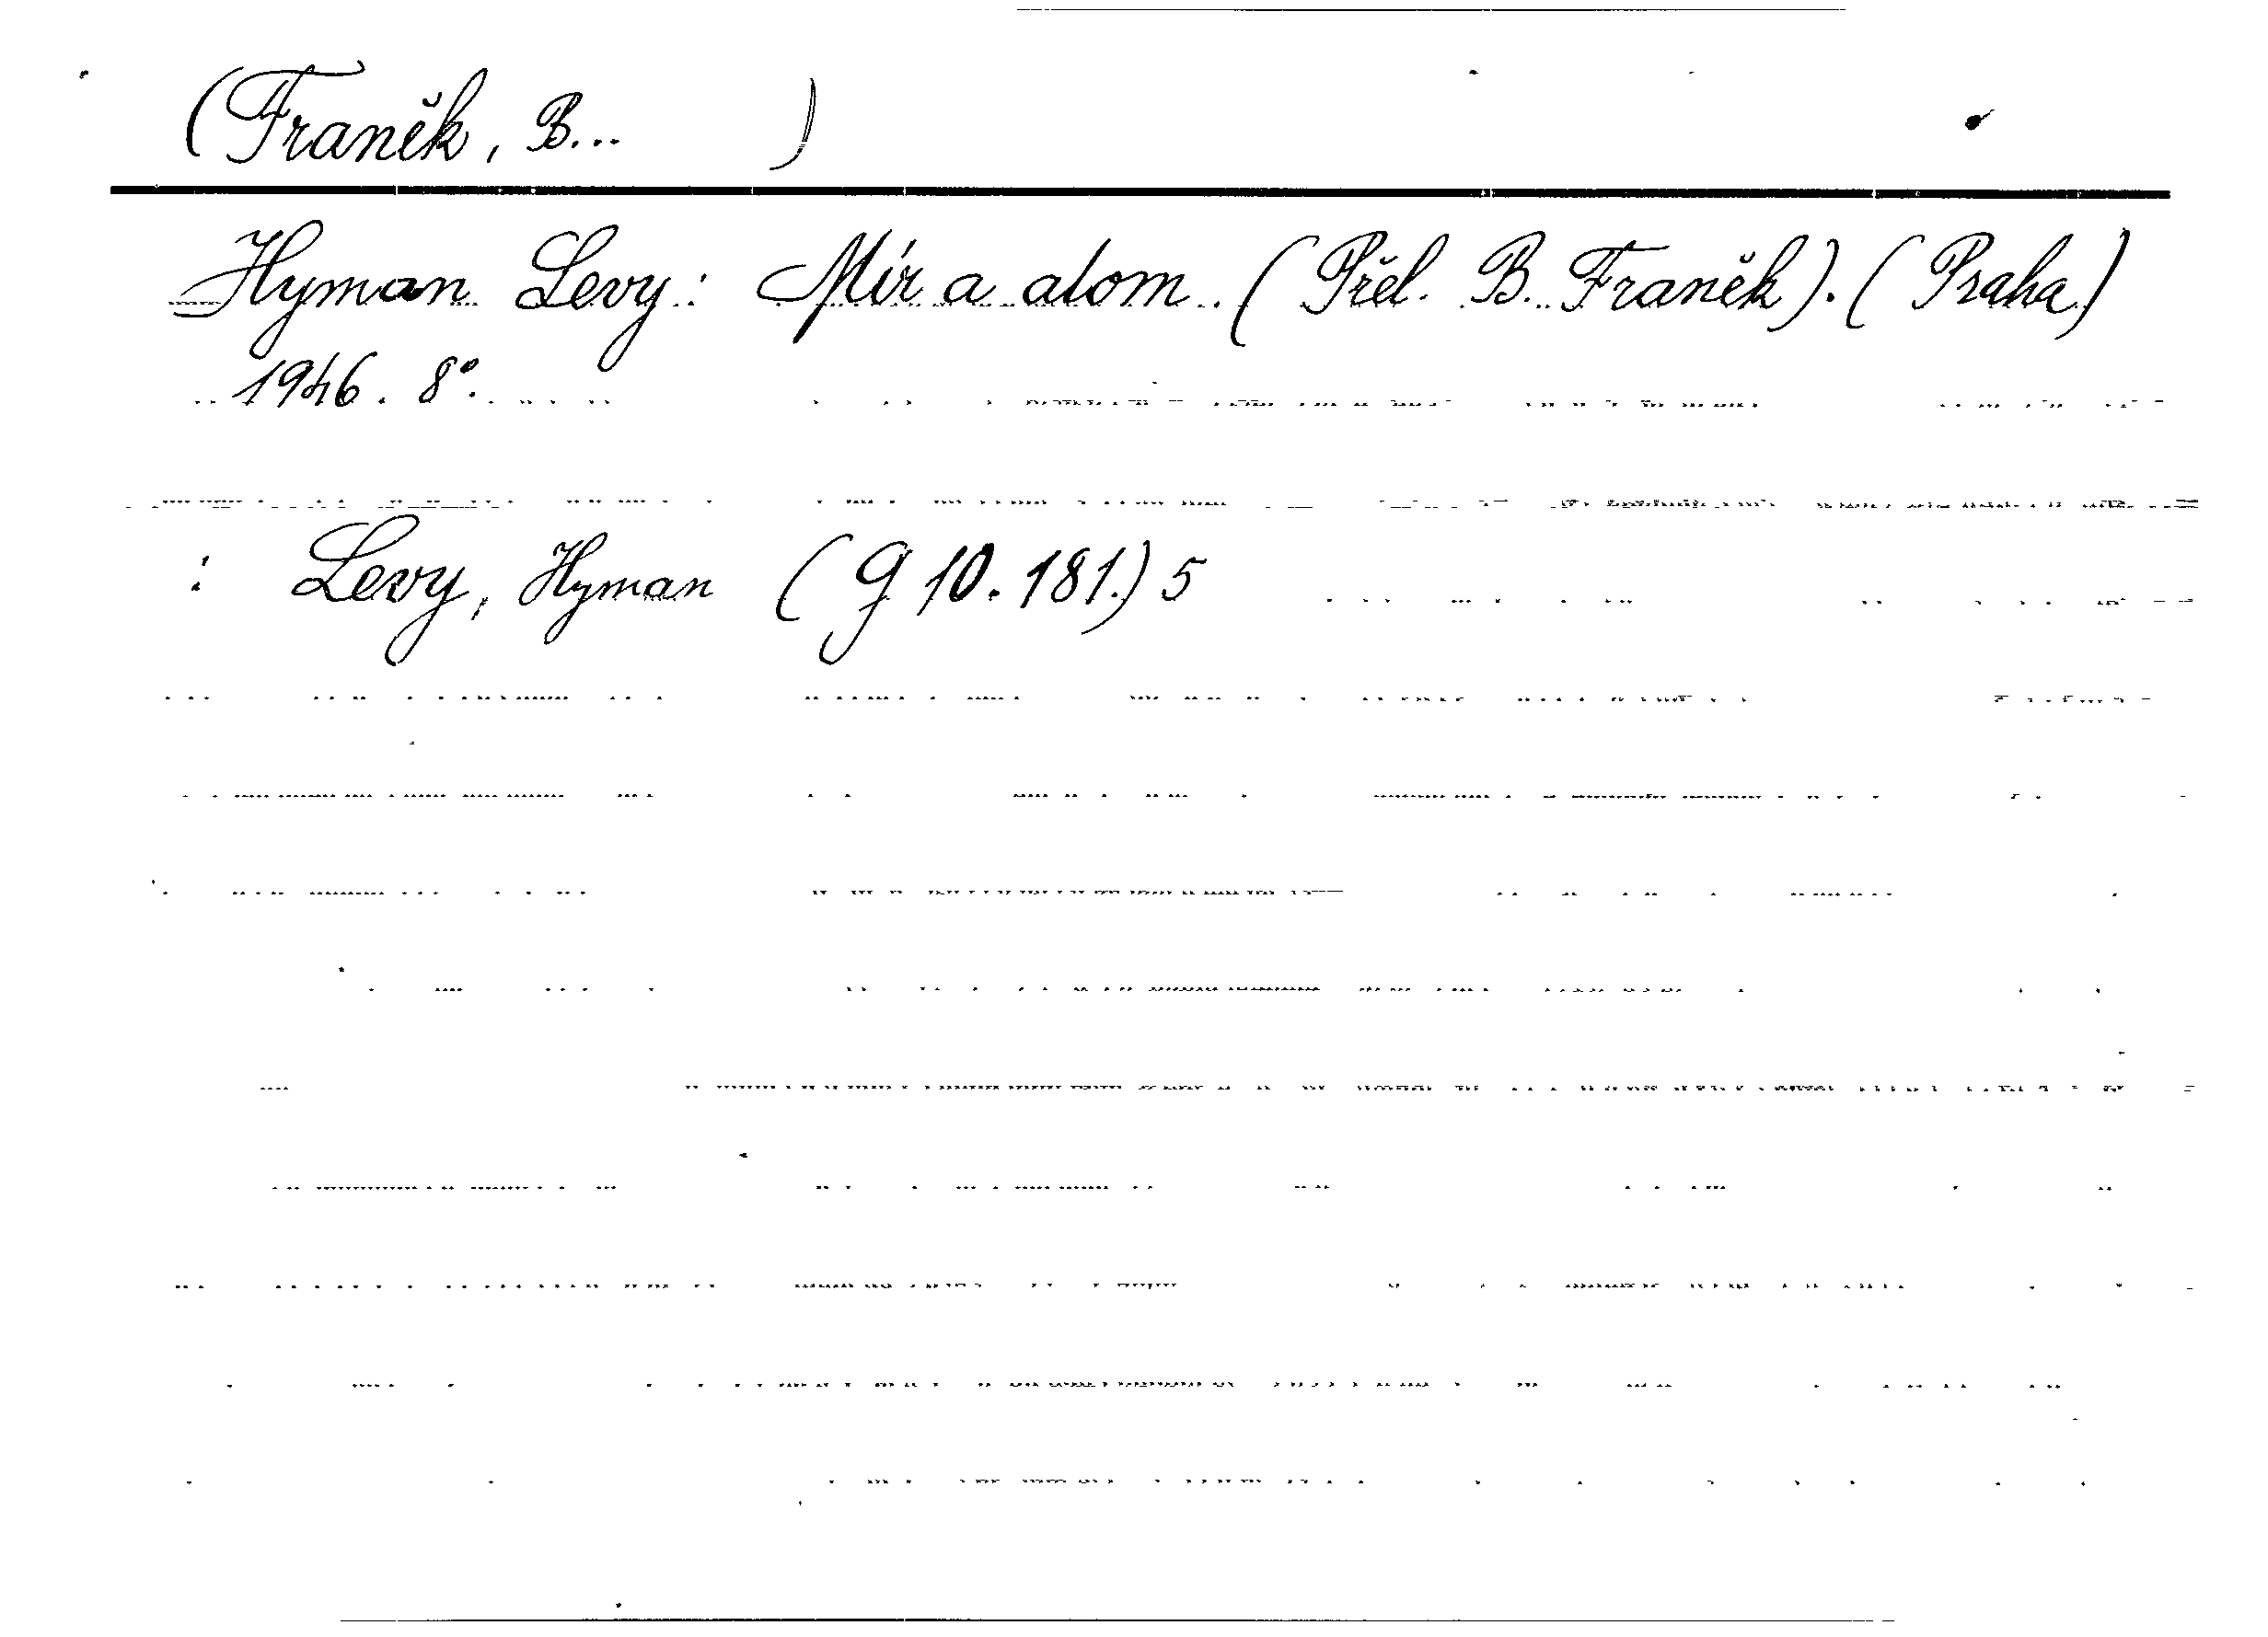 (Franěk, B... )
Hyman Levy: Mír a atom. (Přel. B. Franěk). (Praha)
1946. 8°.
: Levy, Hyman (g 10.181.) 5